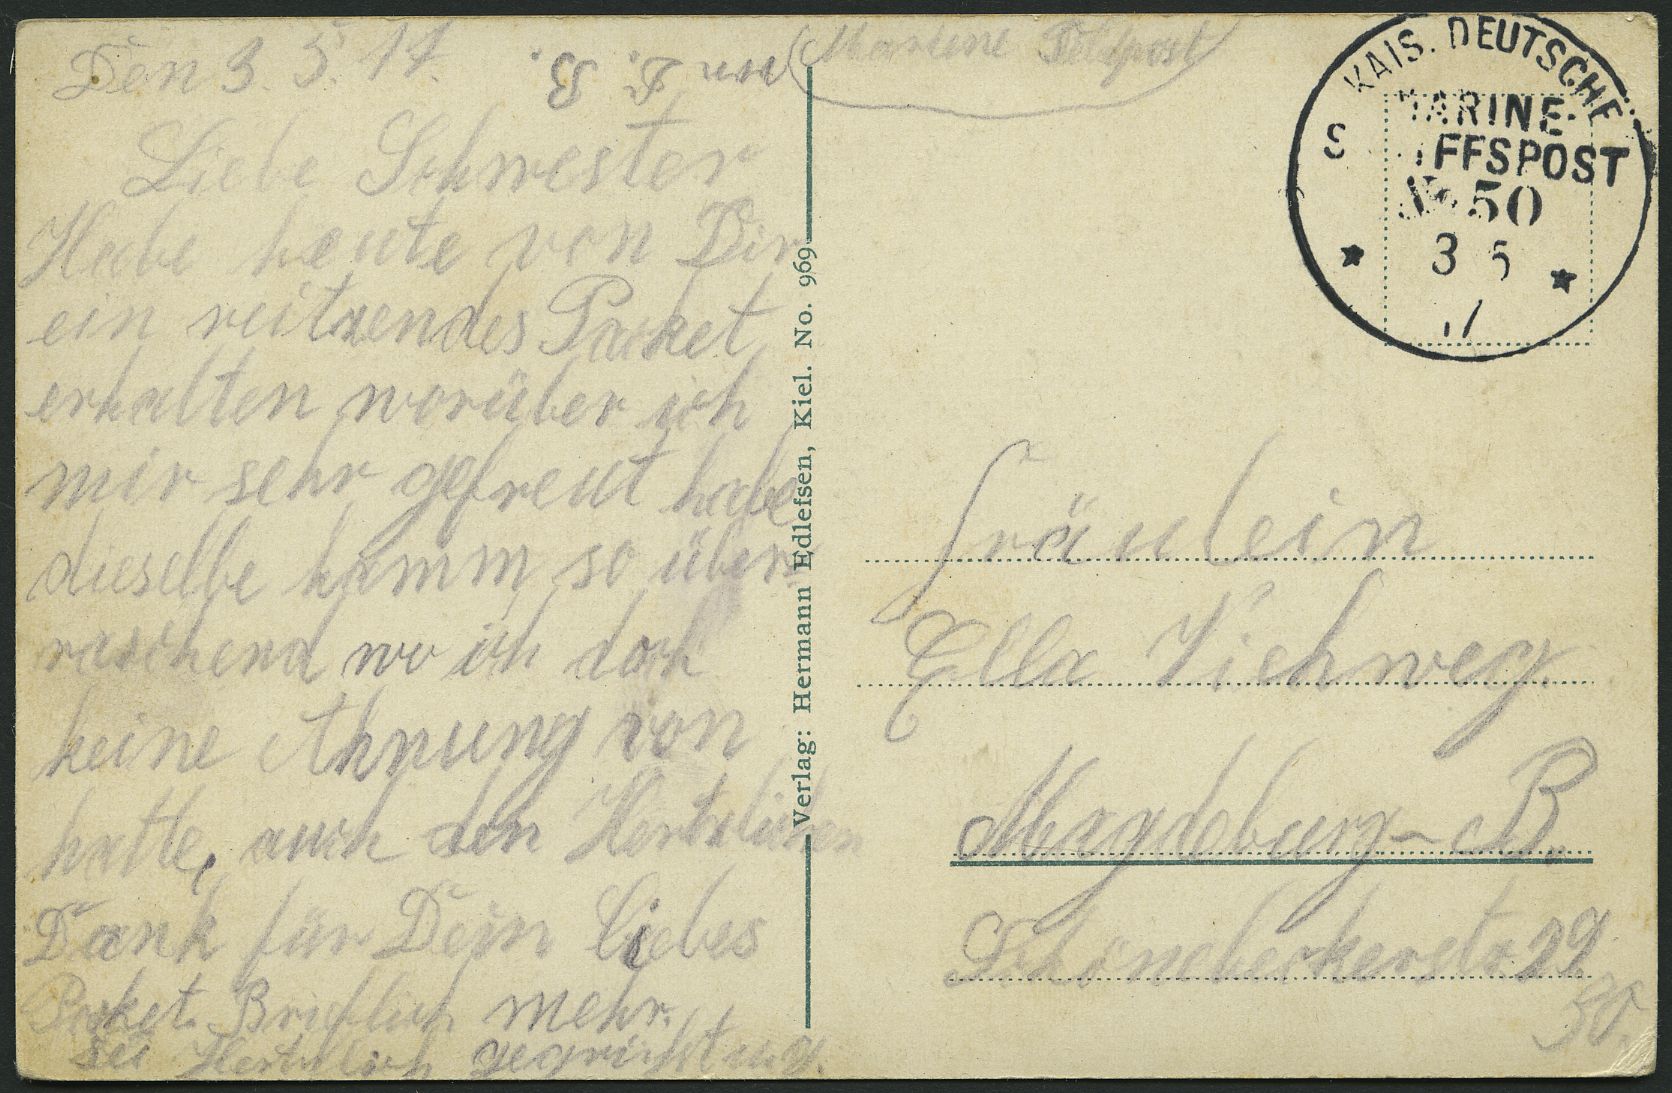 Den 3. 5. 17.
Liebe Schwester
Habe heute von Dir
ein reitzendes Packet
erhalten worüber ich
mir sehr gefreut habe
dieselbe kamm, so über-
raschend wo ich doch
keine Ahnung von
hatte, auch den Hertzlichen
Dank für Dein liebes
Packet. Brieflich mehr.
Sei Hertzlich gegrüßt u. g.
von F. B.
Marine Feldpost
Verlag: Hermann Edlefsen, Kiel. No. 969
KAIS. DEUTSCHE
MARINE-
S FFSPOST
No 50
3 5
17
Fräulein
Ella Viehweg.
Magdeburg-B.
Schönebeckerstr 29
30.